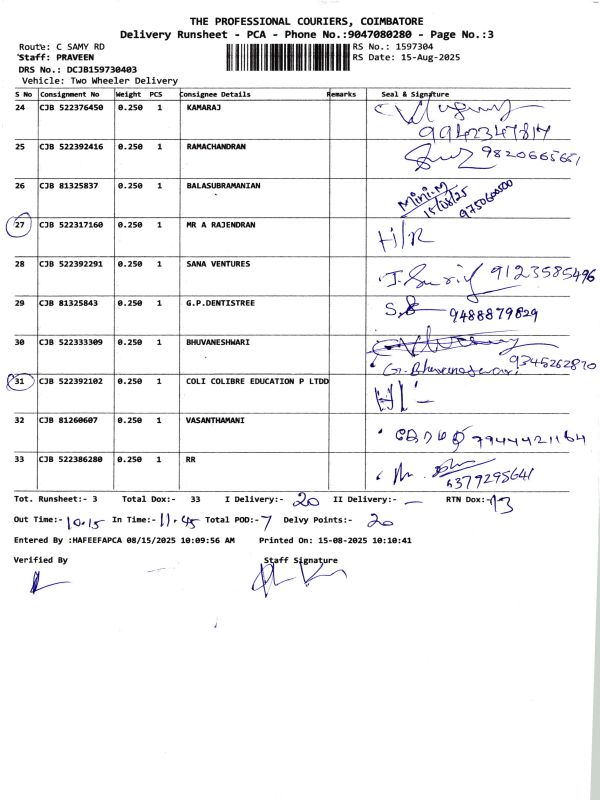 THE PROFESSIONAL COURIERS, COIMBATORE
Delivery Runsheet - PCA - Phone No.:9047080280 - Page No.:3
Route: C SAMY RD
Staff: PRAVEEN
DRS No.: DCJB159730403
Vehicle: Two Wheeler Delivery
RS No.: 1597304
RS Date: 15-Aug-2025
S No Consignment No Weight PCS Consignee Details Remarks Seal & Signature
24 CJB 522376450 0.250 1 KAMARAJ
9942347817
25 CJB 522392416 0.250 1 RAMACHANDRAN 9820665651
26 CJB 81325837 0.250 1 BALASUBRAMANIAN Mini.M
15/08/25
27 CJB 522317160 0.250 1 MR A RAJENDRAN H/R
28 CJB 522392291 0.250 1 SANA VENTURES 9123585496
29 CJB 81325843 0.250 1 G.P.DENTISTREE 9488879829
30 CJB 522333309 0.250 1 BHUVANESHWARI
9345262870
31 CJB 522392102 0.250 1 COLI COLIBRE EDUCATION P LTDD
32 CJB 81260607 0.250 1 VASANTHAMANI 7944421164
33 CJB 522386280 0.250 1 RR
5379295641
Tot. Runsheet:- 3 Total Dox:- 33 I Delivery:- 20 II Delivery:- — RTN Dox:- 13
Out Time:- 10.15 In Time:- 11.45 Total POD:- 7 Delvy Points:- 20
Entered By :HAFEEFAPCA 08/15/2025 10:09:56 AM Printed On: 15-08-2025 10:10:41
Verified By Staff Signature